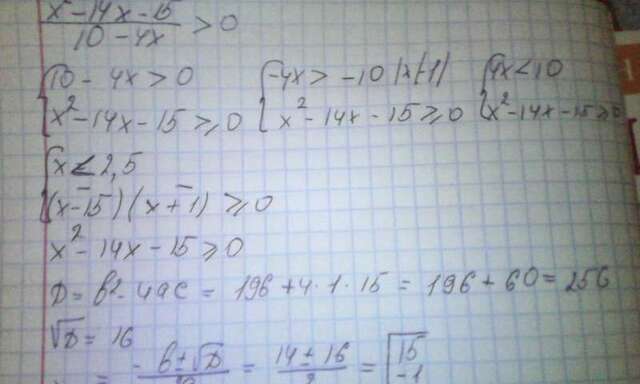 x²-14x-15 / 10-4x > 0
{10-4x>0 {-4x>-10 |x(-1) {4x<10
{x²-14x-15≥0 {x²-14x-15≥0 {x²-14x-15≥0
{x<2,5
{(x-15)(x+1)≥0
x²-14x-15≥0
D=b²-4ac=196+4·1·15=196+60=256
√D=16
= -b±√D / = 14±16 / 2 = [15
-1